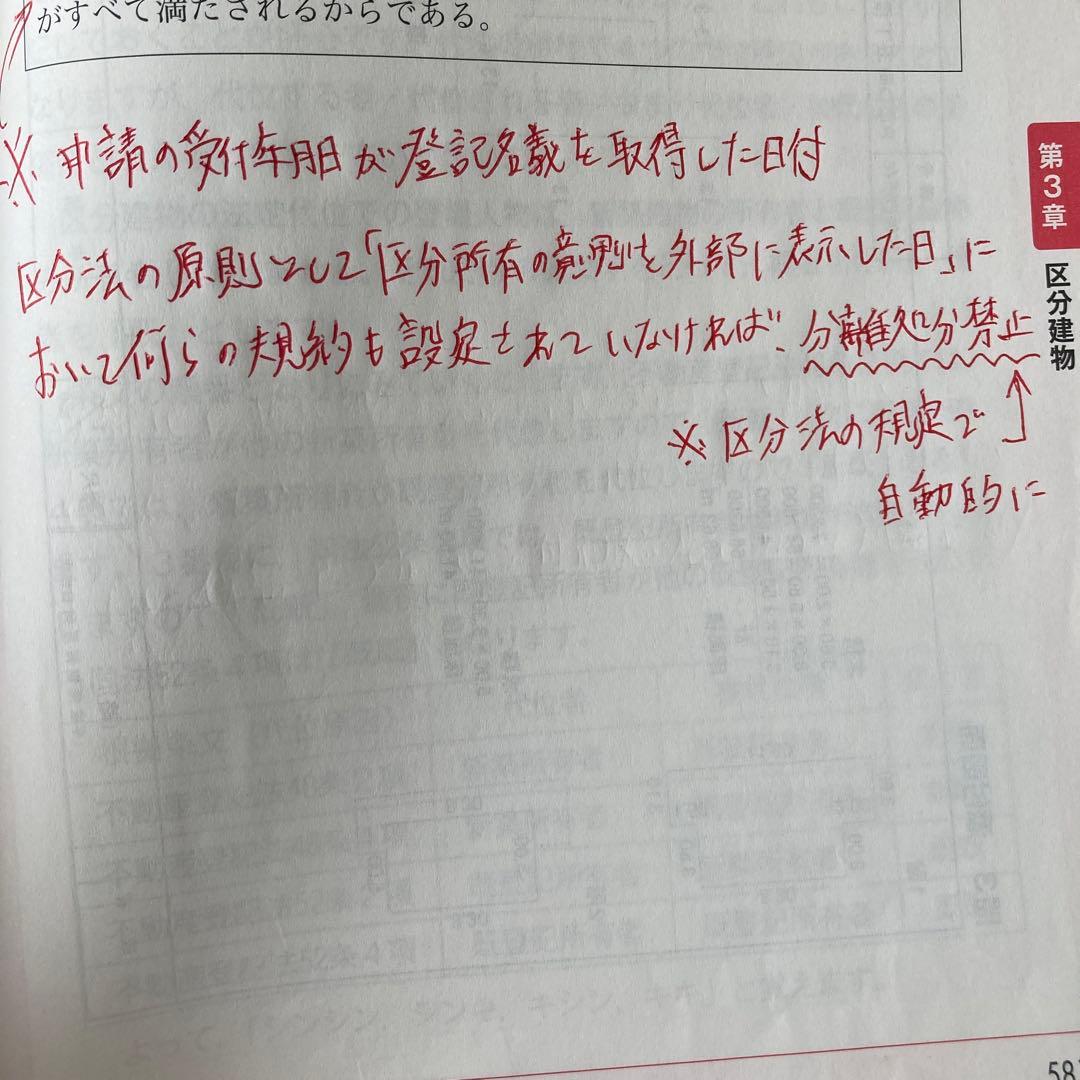 がすべて満たされるからである。
※ 申請の受付年月日が登記名義を取得した日付
区分法の原則として「区分所有の意思を外部に表示した日」に
おいて何らの規約も設定されていなければ、分離処分禁止
※ 区分法の規定で
自動的に
第3章
区分建物
58